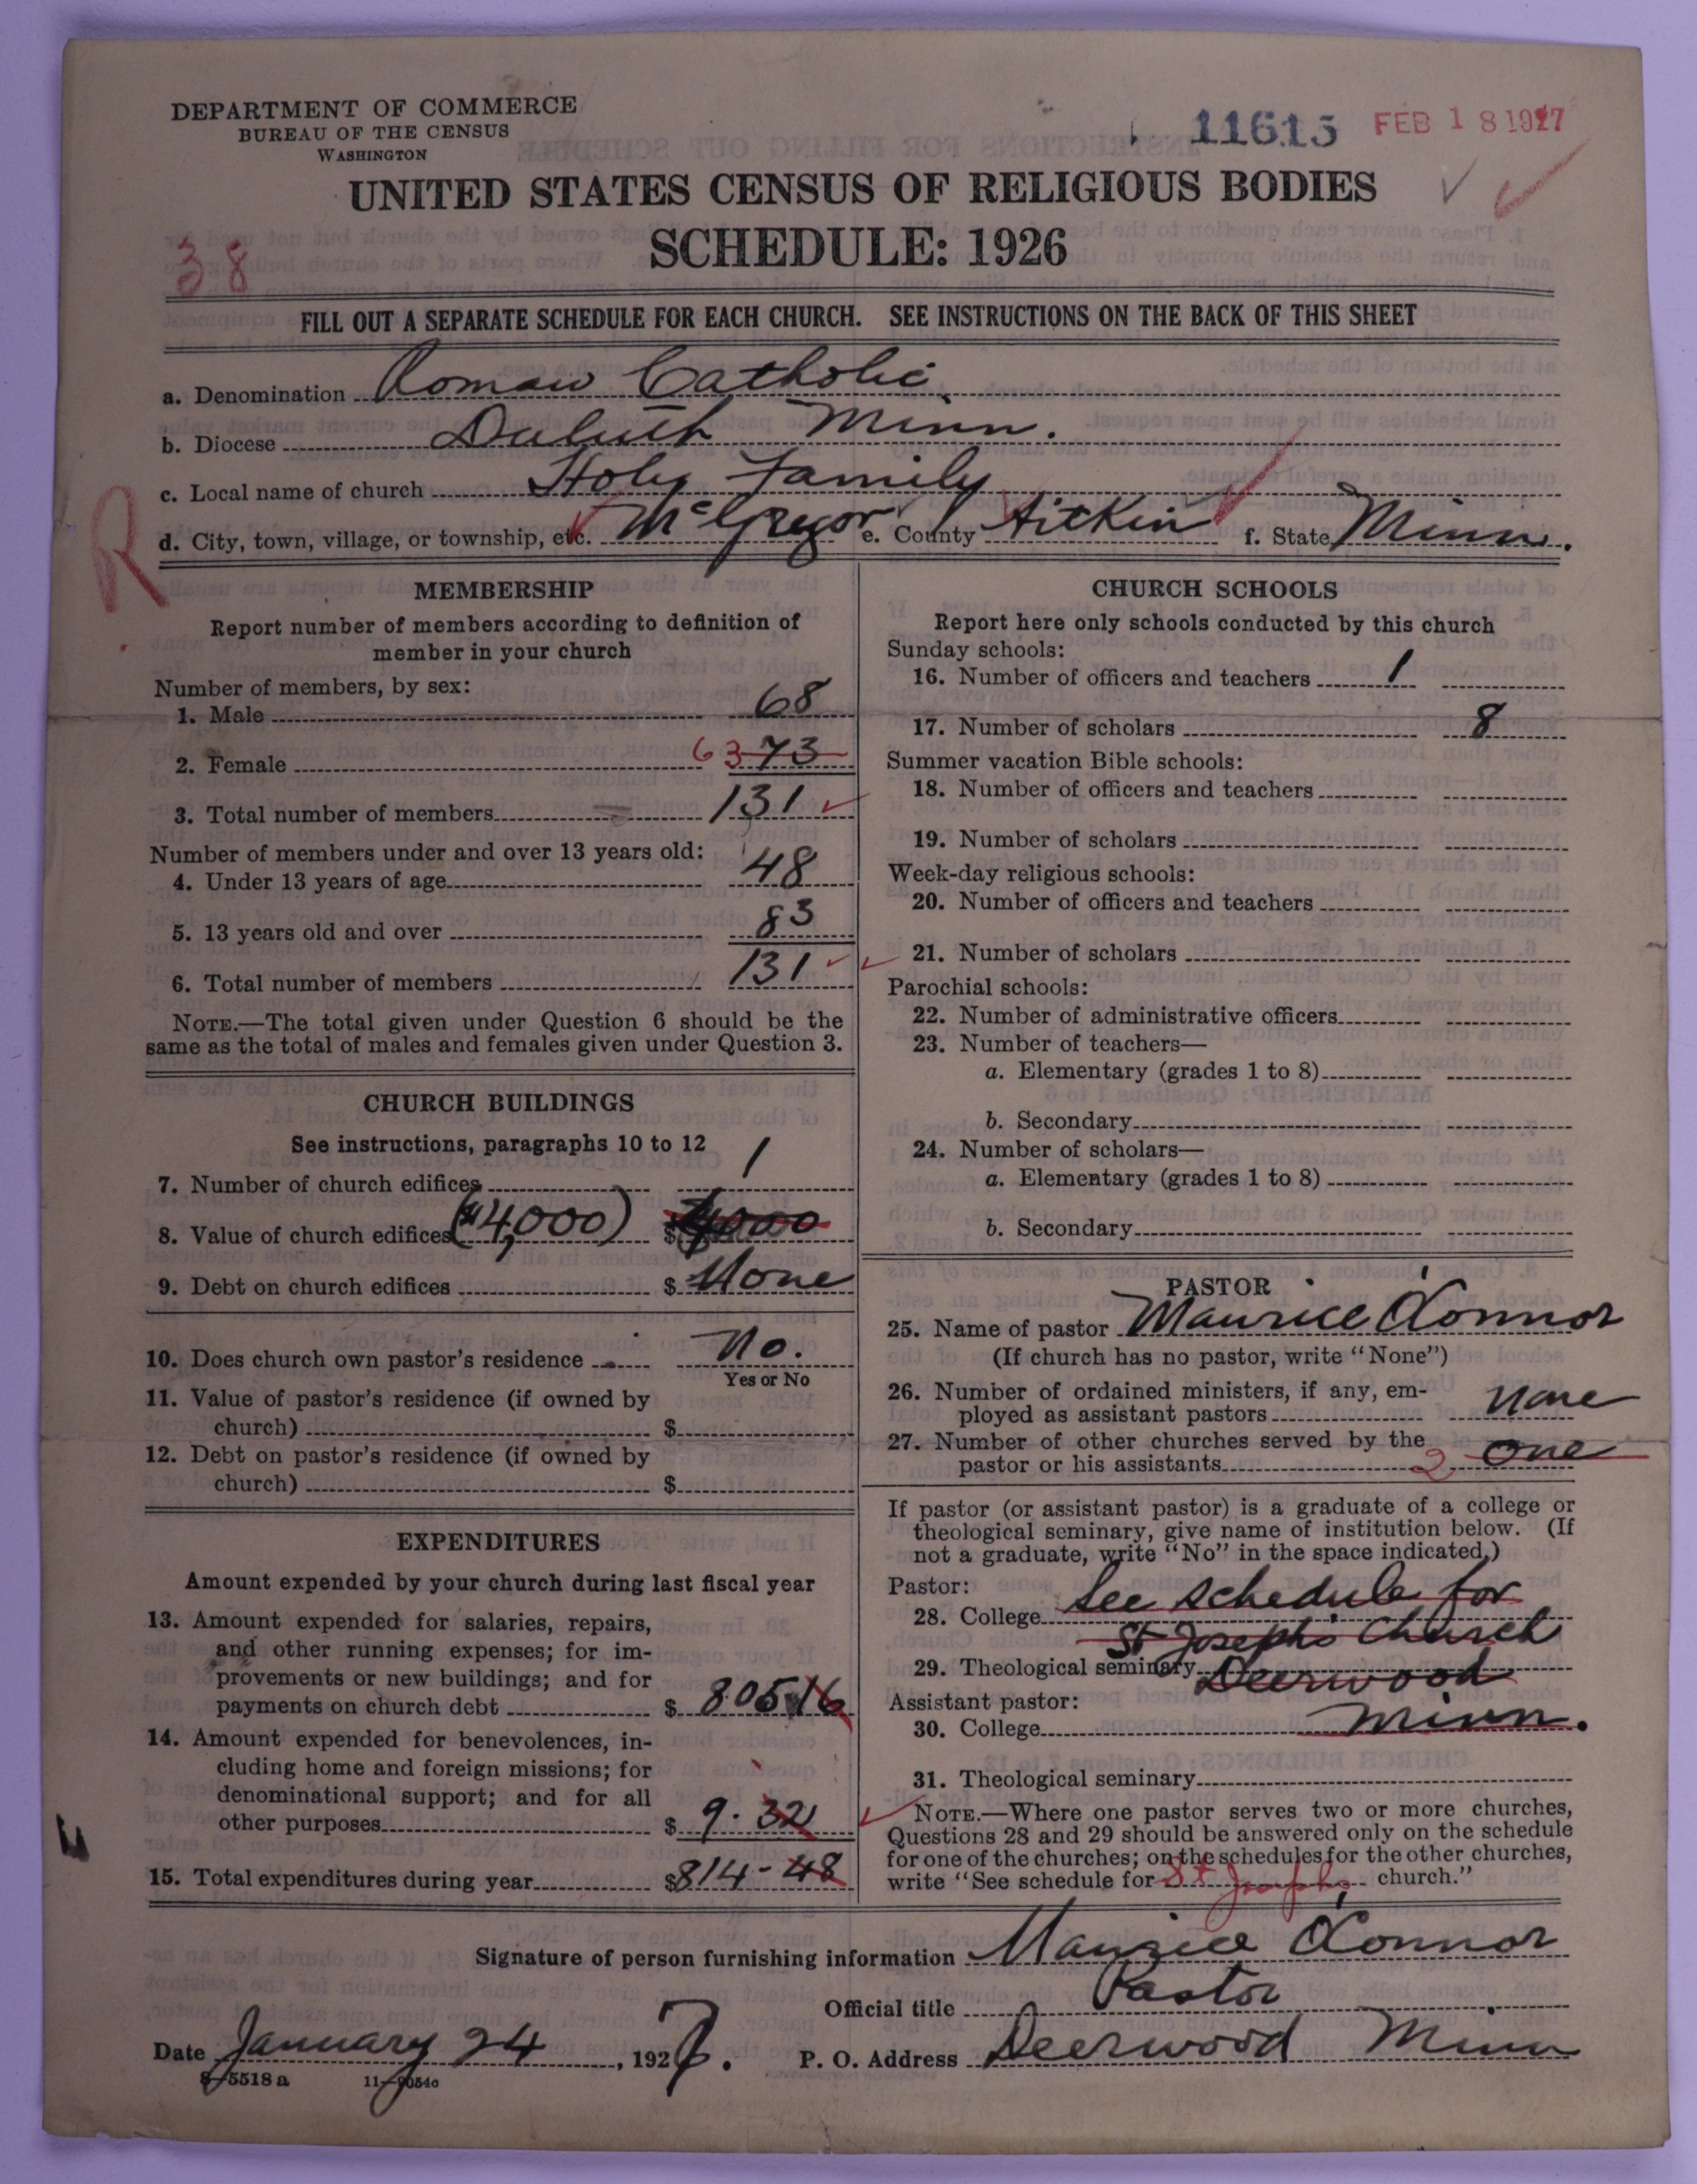 DEPARTMENT OF COMMERCE
BUREAU OF THE CENSUS
WASHINGTON
11615 FEB 18 1927
UNITED STATES CENSUS OF RELIGIOUS BODIES
SCHEDULE: 1926
38
FILL OUT A SEPARATE SCHEDULE FOR EACH CHURCH. SEE INSTRUCTIONS ON THE BACK OF THIS SHEET
a. Denomination Roman Catholic
b. Diocese Duluth Minn.
c. Local name of church Holy Family
d. City, town, village, or township, etc. McGregor e. County Aitkin f. State Minn.
R
MEMBERSHIP
Report number of members according to definition of
member in your church
Number of members, by sex:
1. Male 68
2. Female 63 73
3. Total number of members 131
Number of members under and over 13 years old:
4. Under 13 years of age 48
5. 13 years old and over 83
6. Total number of members 131
NOTE.—The total given under Question 6 should be the
same as the total of males and females given under Question 3.
CHURCH BUILDINGS
See instructions, paragraphs 10 to 12
7. Number of church edifices 1
8. Value of church edifices ($4,000) $ 4000
9. Debt on church edifices $ None
10. Does church own pastor's residence No.
Yes or No
11. Value of pastor's residence (if owned by
church) $
12. Debt on pastor's residence (if owned by
church) $
EXPENDITURES
Amount expended by your church during last fiscal year
13. Amount expended for salaries, repairs,
and other running expenses; for im-
provements or new buildings; and for
payments on church debt $ 805.16
14. Amount expended for benevolences, in-
cluding home and foreign missions; for
denominational support; and for all
other purposes $ 9.32
15. Total expenditures during year $814-48
CHURCH SCHOOLS
Report here only schools conducted by this church
Sunday schools:
16. Number of officers and teachers 1
17. Number of scholars 8
Summer vacation Bible schools:
18. Number of officers and teachers
19. Number of scholars
Week-day religious schools:
20. Number of officers and teachers
21. Number of scholars
Parochial schools:
22. Number of administrative officers
23. Number of teachers—
a. Elementary (grades 1 to 8)
b. Secondary
24. Number of scholars—
a. Elementary (grades 1 to 8)
b. Secondary
PASTOR
25. Name of pastor Maurice O'Connor
(If church has no pastor, write "None")
26. Number of ordained ministers, if any, em-
ployed as assistant pastors none
27. Number of other churches served by the
pastor or his assistants 2 one
If pastor (or assistant pastor) is a graduate of a college or
theological seminary, give name of institution below. (If
not a graduate, write "No" in the space indicated.)
Pastor:
28. College See schedule for
St Joseph's Church
29. Theological seminary Deerwood
Assistant pastor:
30. College Minn.
31. Theological seminary
NOTE.—Where one pastor serves two or more churches,
Questions 28 and 29 should be answered only on the schedule
for one of the churches; on the schedules for the other churches,
write "See schedule for St Josephs church."
Signature of person furnishing information Maurice O'Connor
Official title Pastor
Date January 24, 1927. P. O. Address Deerwood Minn
8-5518 a 11-9054c